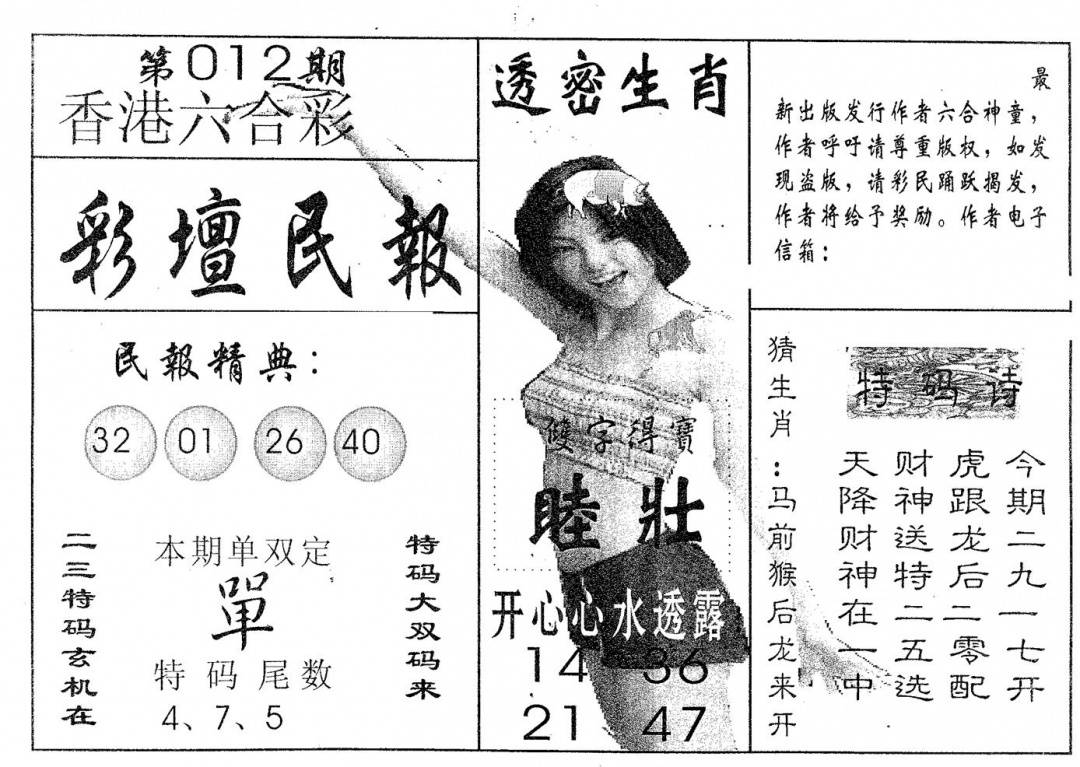 第012期
香港六合彩
彩壇民報
民報精典：
32 01 26 40
二三特码玄机在
本期单双定
單
特码尾数
4、7、5
特码大双码来
透密生肖
雙字得寶
睦壯
开心心水透露
14 36
21 47
最
新出版发行作者六合神童，
作者呼吁请尊重版权，如发
现盗版，请彩民踊跃揭发，
作者将给予奖励。作者电子
信箱：
猜生肖：马前猴后龙来开
特码诗
今期二九一七开
虎跟龙后二零配
财神送特二五选
天降财神在一中